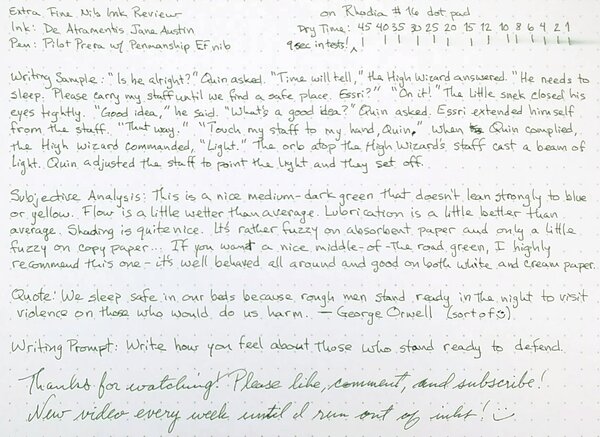 Extra Fine Nib Ink Review on Rhodia #16 dot pad
Ink: De Atramentis Jane Austin Dry Time: 45 40 35 30 25 20 15 12 10 8 6 4 2 1
Pen: Pilot Prera w/ Penmanship EF nib 9 sec in tests!
Writing Sample: "Is he alright?" Quin asked. "Time will tell," the High Wizard answered. "He needs to
sleep. Please carry my staff until we find a safe place. Essri?" "On it!" The little snek closed his
eyes tightly. "Good idea," he said. "What's a good idea?" Quin asked. Essri extended himself
from the staff. "That way." "Touch my staff to my hand, Quin." When Quin complied,
the High Wizard commanded, "Light." The orb atop the High Wizard's staff cast a beam of
light. Quin adjusted the staff to point the light and they set off.
Subjective Analysis: This is a nice medium-dark green that doesn't lean strongly to blue
or yellow. Flow is a little wetter than average. Lubrication is a little better than
average. Shading is quite nice. It's rather fuzzy on absorbent paper and only a little
fuzzy on copy paper... If you want a nice middle-of-the road green, I highly
recommend this one - it's well behaved all around and good on both white and cream paper.
Quote: We sleep safe in our beds because rough men stand ready in the night to visit
violence on those who would do us harm. — George Orwell (sort of ☺)
Writing Prompt: Write how you feel about those who stand ready to defend.
Thanks for watching! Please like, comment, and subscribe!
New video every week until I run out of inks! ☺